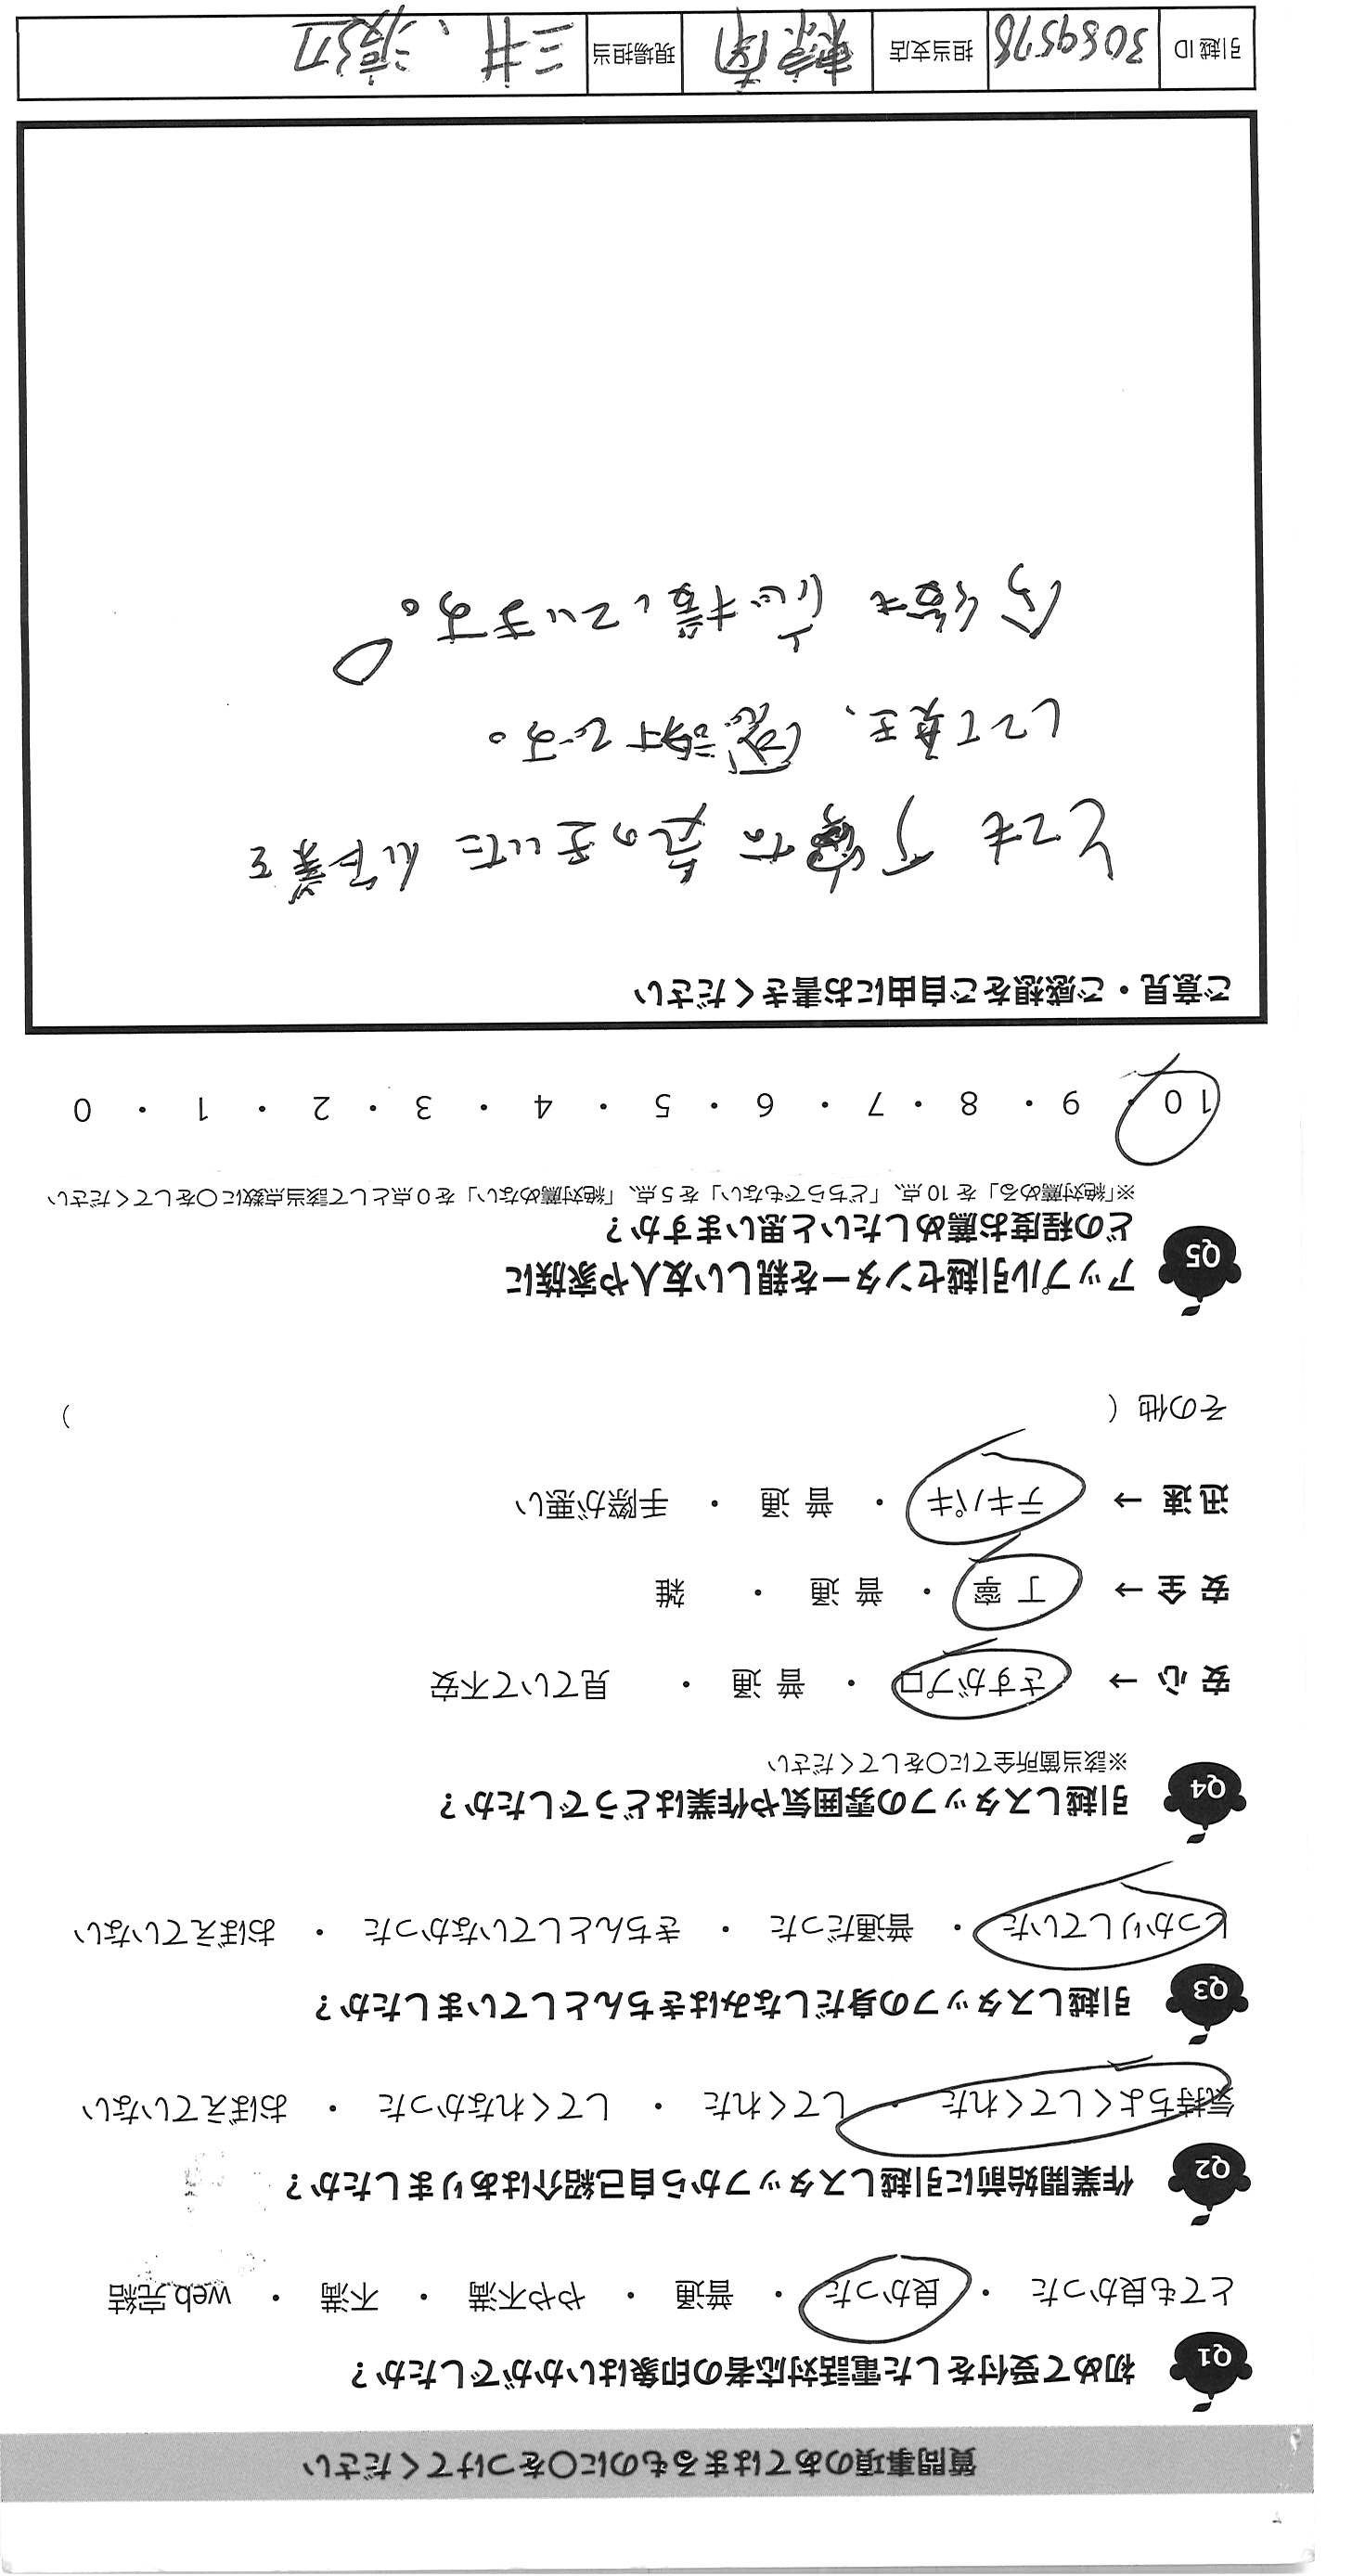 質問事項のあてはまるものに〇をつけてください
Q1 初めて受付をした電話対応者の印象はいかがでしたか?
とても良かった ・ 良かった ・ 普通 ・ やや不満 ・ 不満 ・ web完結
Q2 作業開始前に引越しスタッフから自己紹介はありましたか?
気持ちよくしてくれた ・ してくれた ・ してくれなかった ・ おぼえていない
Q3 引越しスタッフの身だしなみはきちんとしていましたか?
しっかりしていた ・ 普通だった ・ きちんとしていなかった ・ おぼえていない
Q4 引越しスタッフの雰囲気や作業はどうでしたか?
※該当箇所全てに〇をしてください
安心 → さすがプロ ・ 普通 ・ 見ていて不安
安全 → 丁寧 ・ 普通 ・ 雑
迅速 → テキパキ ・ 普通 ・ 手際が悪い
その他 ( )
Q5 アップル引越センターを親しい友人や家族に
どの程度お薦めしたいと思いますか?
※「絶対薦める」を10点、「どちらでもない」を5点、「絶対薦めない」を0点として該当点数に〇をしてください
10 ・ 9 ・ 8 ・ 7 ・ 6 ・ 5 ・ 4 ・ 3 ・ 2 ・ 1 ・ 0
ご意見・ご感想をご自由にお書きください
とても丁寧な気のきいた作業を
して頂き、感謝です。
今後も応援しています。
引越ID 3069578 担当支店 東京南 現場担当 三井、